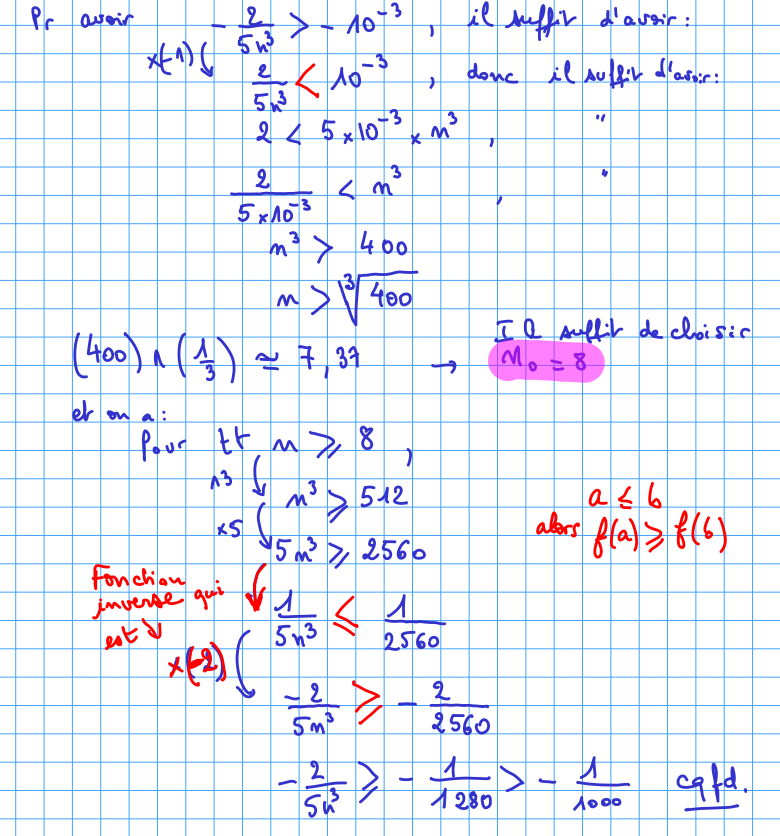 Pr avoir -2/(5n³) > -10⁻³, il suffit d'avoir :
×(-1)
2/(5n³) < 10⁻³, donc il suffit d'avoir :
2 < 5×10⁻³×n³, "
2/(5×10⁻³) < n³, "
n³ > 400
n > ∛400
(400)∧(1/3) ≃ 7,37 → Il suffit de choisir
n₀ = 8
et on a :
Pour tt n ⩾ 8,
∧3
n³ ⩾ 512
×5
5n³ ⩾ 2560
a ≤ b
alors f(a) ⩾ f(b)
Fonction
inverse qui
est ↘
1/(5n³) ≤ 1/2560
×(-2)
-2/(5n³) ⩾ -2/2560
-2/(5n³) ⩾ -1/1280 > -1/1000 cqfd.